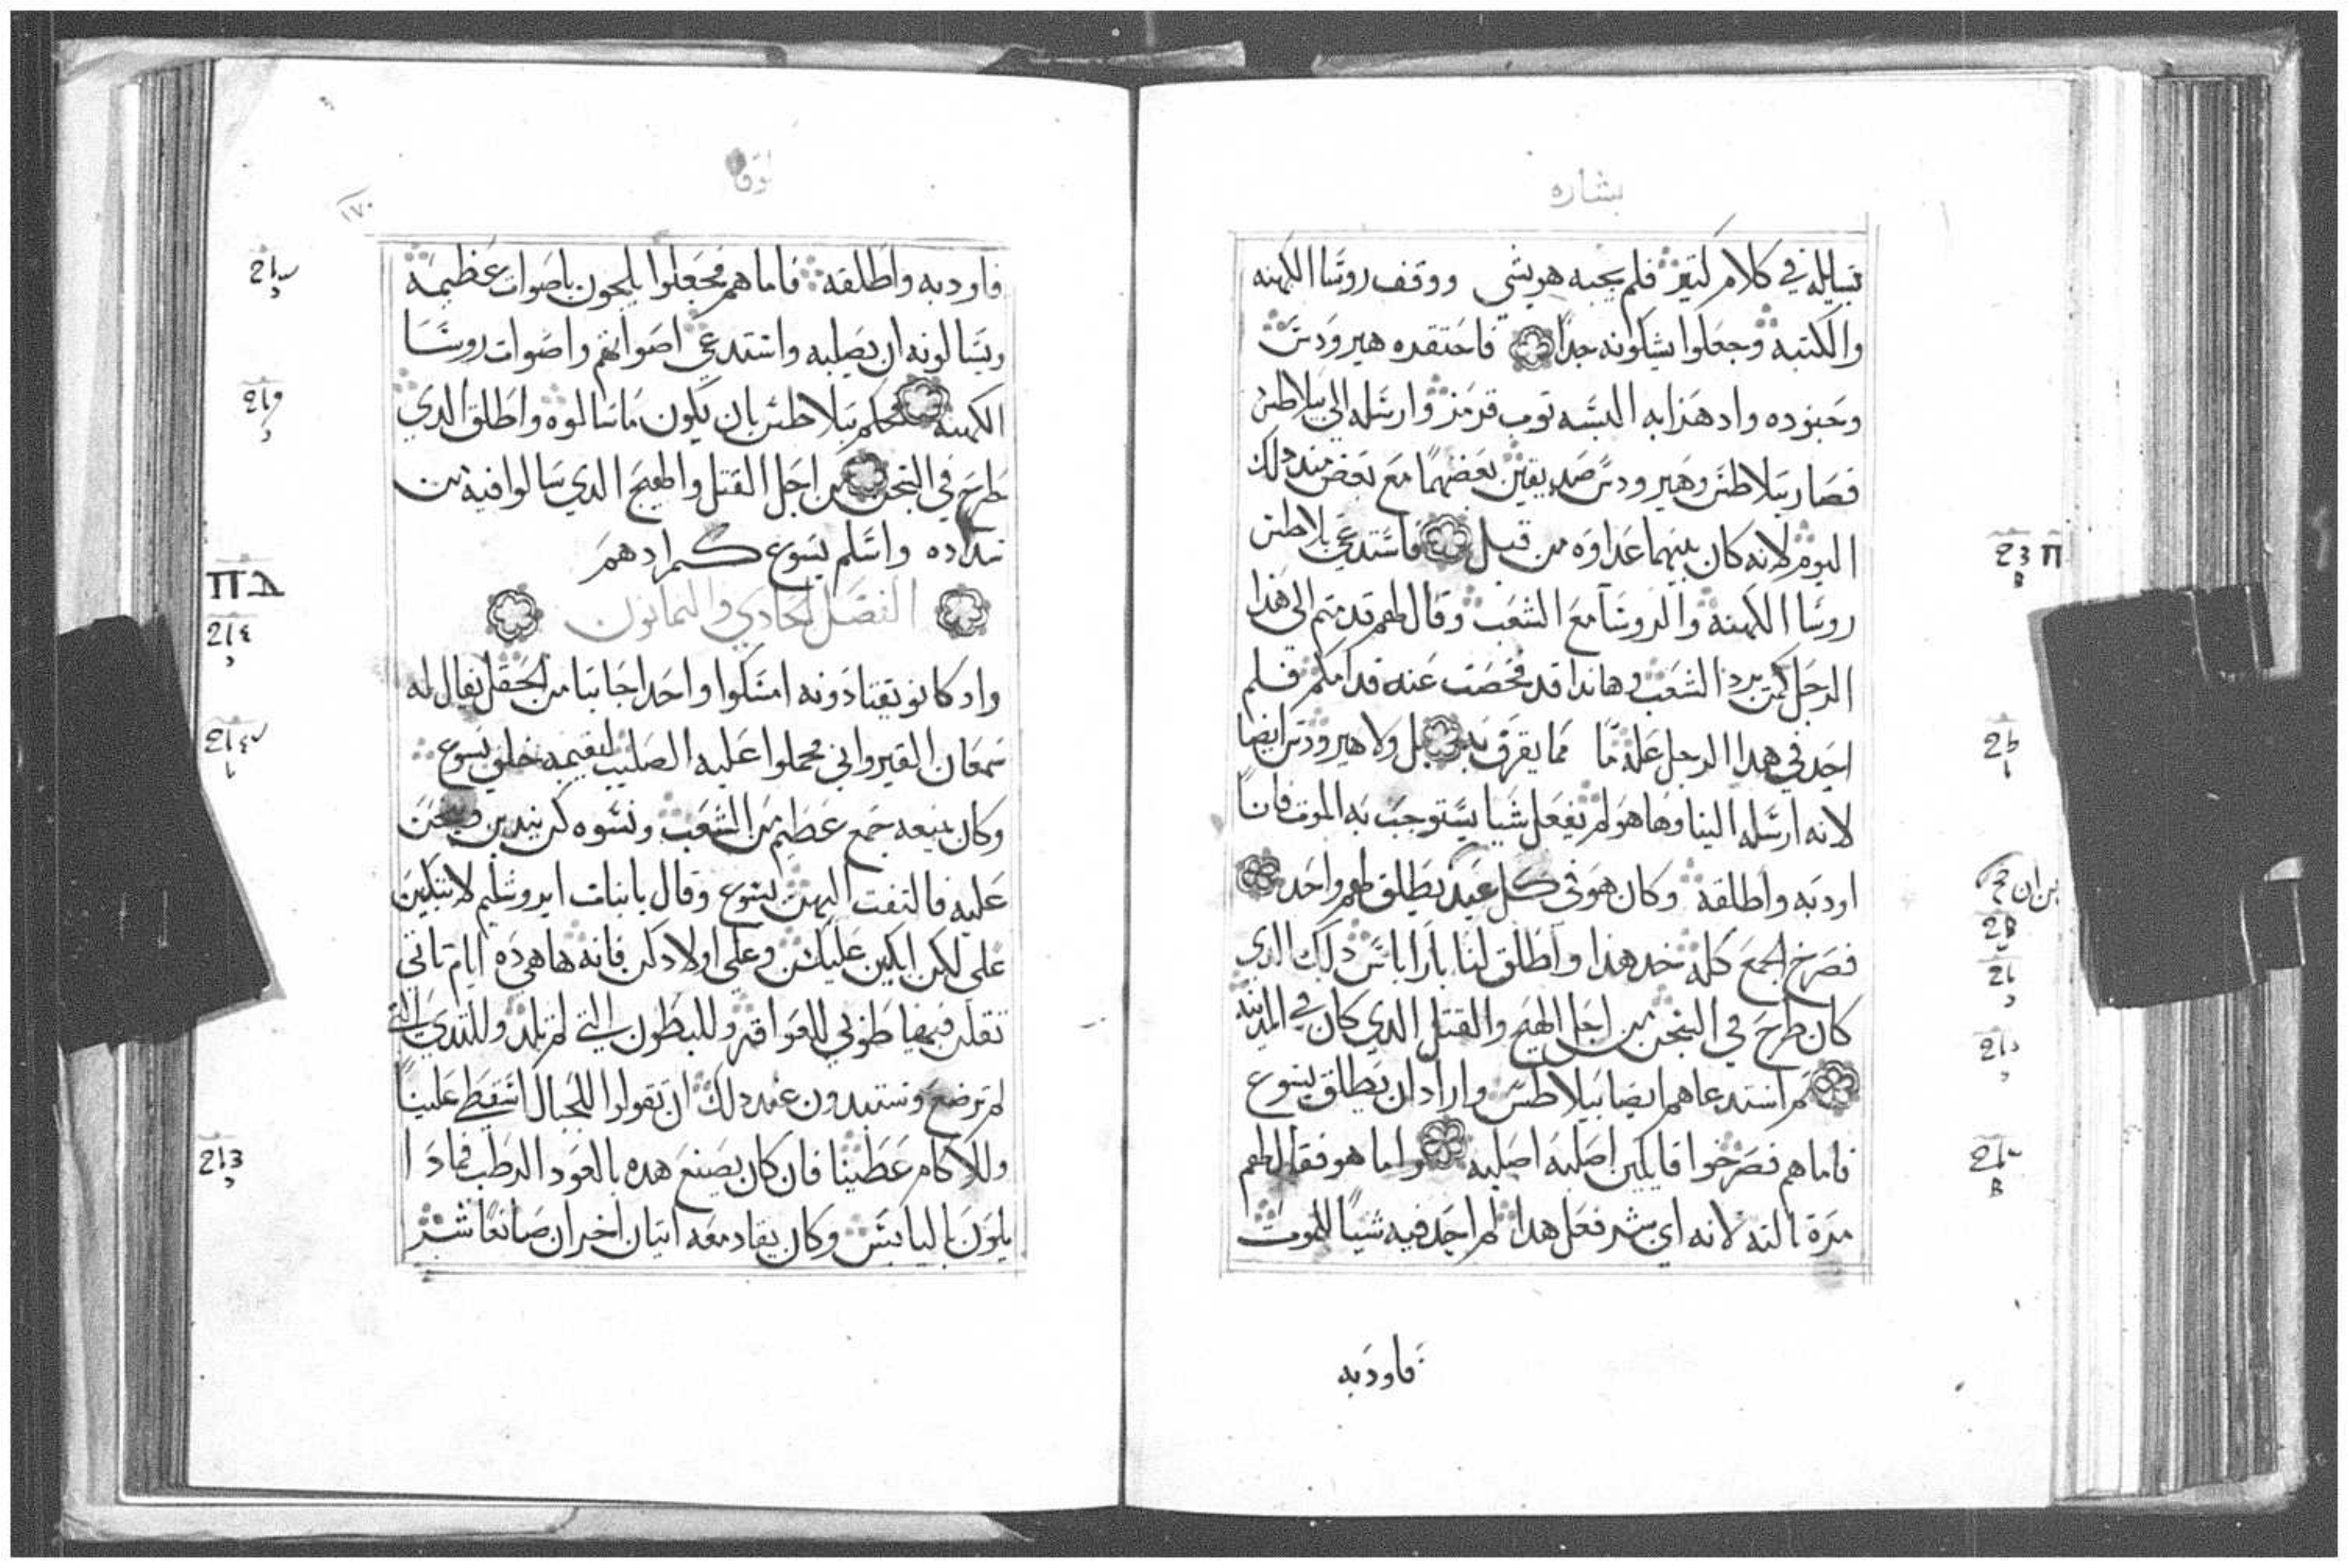 بشاره
يسايله في كلام كتير فلم يجبه هو بشي ووقف روسا الكهنه
والكتبه وجعلوا يشكونه جدا فاحتقده هيرودس
وجنوده واد هزابه البسه توب قرمز وارسله الي بيلاطس
فصار بيلاطس وهيرودس صديقين بعضهما مع بعض مند دلك
اليوم لانه كان بينهما عداوه من قبل فاستدعي بلاطس
روسا الكهنه والروسا مع الشعب وقال لهم قدمتم الي هدا
الرجل كمن يرد الشعب وهاندا قد فحصت عنه قدامكم فلم
اجد في هدا الرجل علة ما مما يقرف به بل ولا هيرودس ايضا
لانه ارسله الينا وها هو لم يفعل شيا يستوجب به الموت فانا
اودبه واطلقه وكان هو في كل عيد يطلق لهم واحد
فصرخ الجمع كله خد هدا واطلق لنا باراباس دلك الدي
كان طرح في السجن من اجل الهيج والقتل الدي كان في المدينة
تم استدعاهم ايضا بيلاطس واراد ان يطلق يسوع
فاما هم فصرخوا قايلين اصلبه اصلبه واما هو فقال لهم
مرة تالته لانه اي شر فعل هدا لم اجد فيه شيا للموت
فاودبه
لوقا
١٧٠
فاودبه واطلقه فاما هم فجعلوا يلجون باصوات عظيمه
ويسالونه ان يصلبه واشتد عي اصواتهم واصوات روسا
الكهنه فحكم بيلاطس بان يكون ما سالوه واطلق الدي
طرح في السجن من اجل القتل والهيج الدي سالوا فيه
واسلم يسوع كمرادهم
الفصل الحادي والتمانون
واد كانو يقتادونه امسكوا واحدا جايا من الحقل يقال له
سمعان القيرواني فحملوا عليه الصليب ليقيمه خلف يسوع
وكان يتبعه جمع عظيم من الشعب ونسوه كن يندبن وينحن
عليه فالتفت اليهن يسوع وقال يا بنات ايروشليم لا تبكين
علي لكن ابكين عليكن وعلي اولادكن فانه ها هي ده ايام تاتي
تقلن فيها طوبي للعواقر وللبطون التي لم تلد وللتدي التي
لم ترضع وتستبدون عند دلك ان تقولوا للجبال اسقطي علينا
وللاكام غطينا فان كان يصنع هده بالعود الرطب فمادا
يكون باليابس وكان يقاد معه اتنان اخران صانعا شر